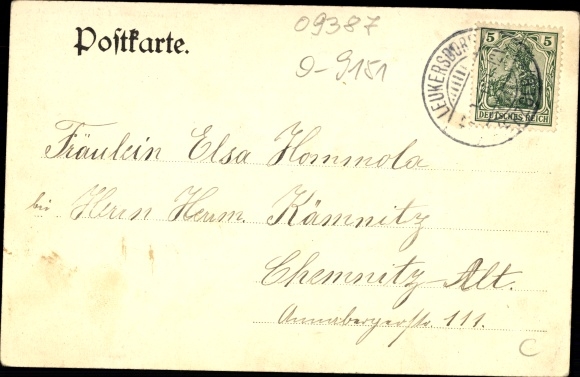 Postkarte.
09387
D-9151
LEUKERSDORF
5 5
DEUTSCHES REICH
Fräulein Elsa Hommola
bei Herrn Herm. Kämnitz
Chemnitz-Alt.
Annabergerstr. 111.
C